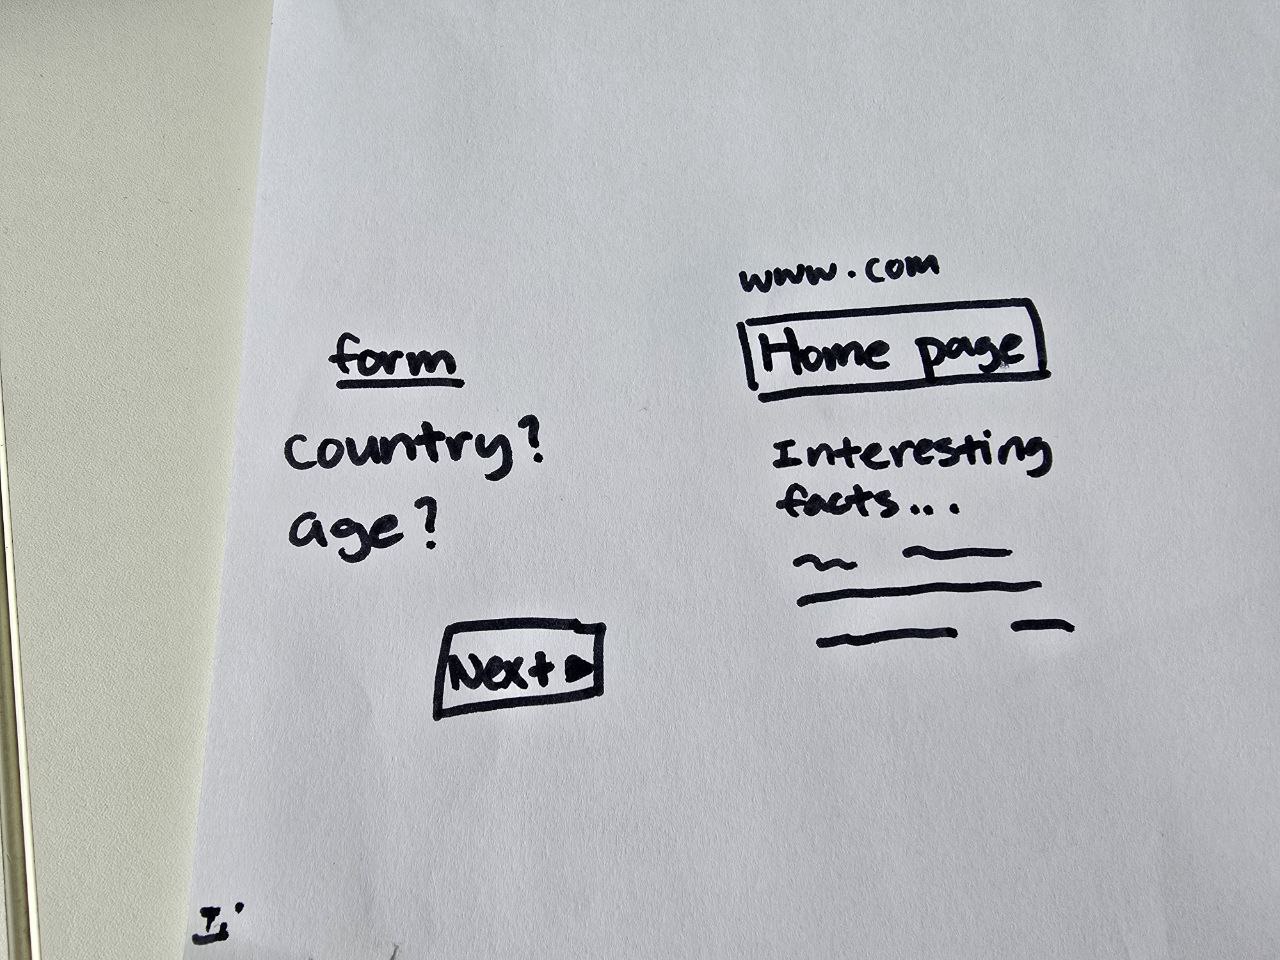 form
country?
age?
Next
www.com
Home page
Interesting
facts...